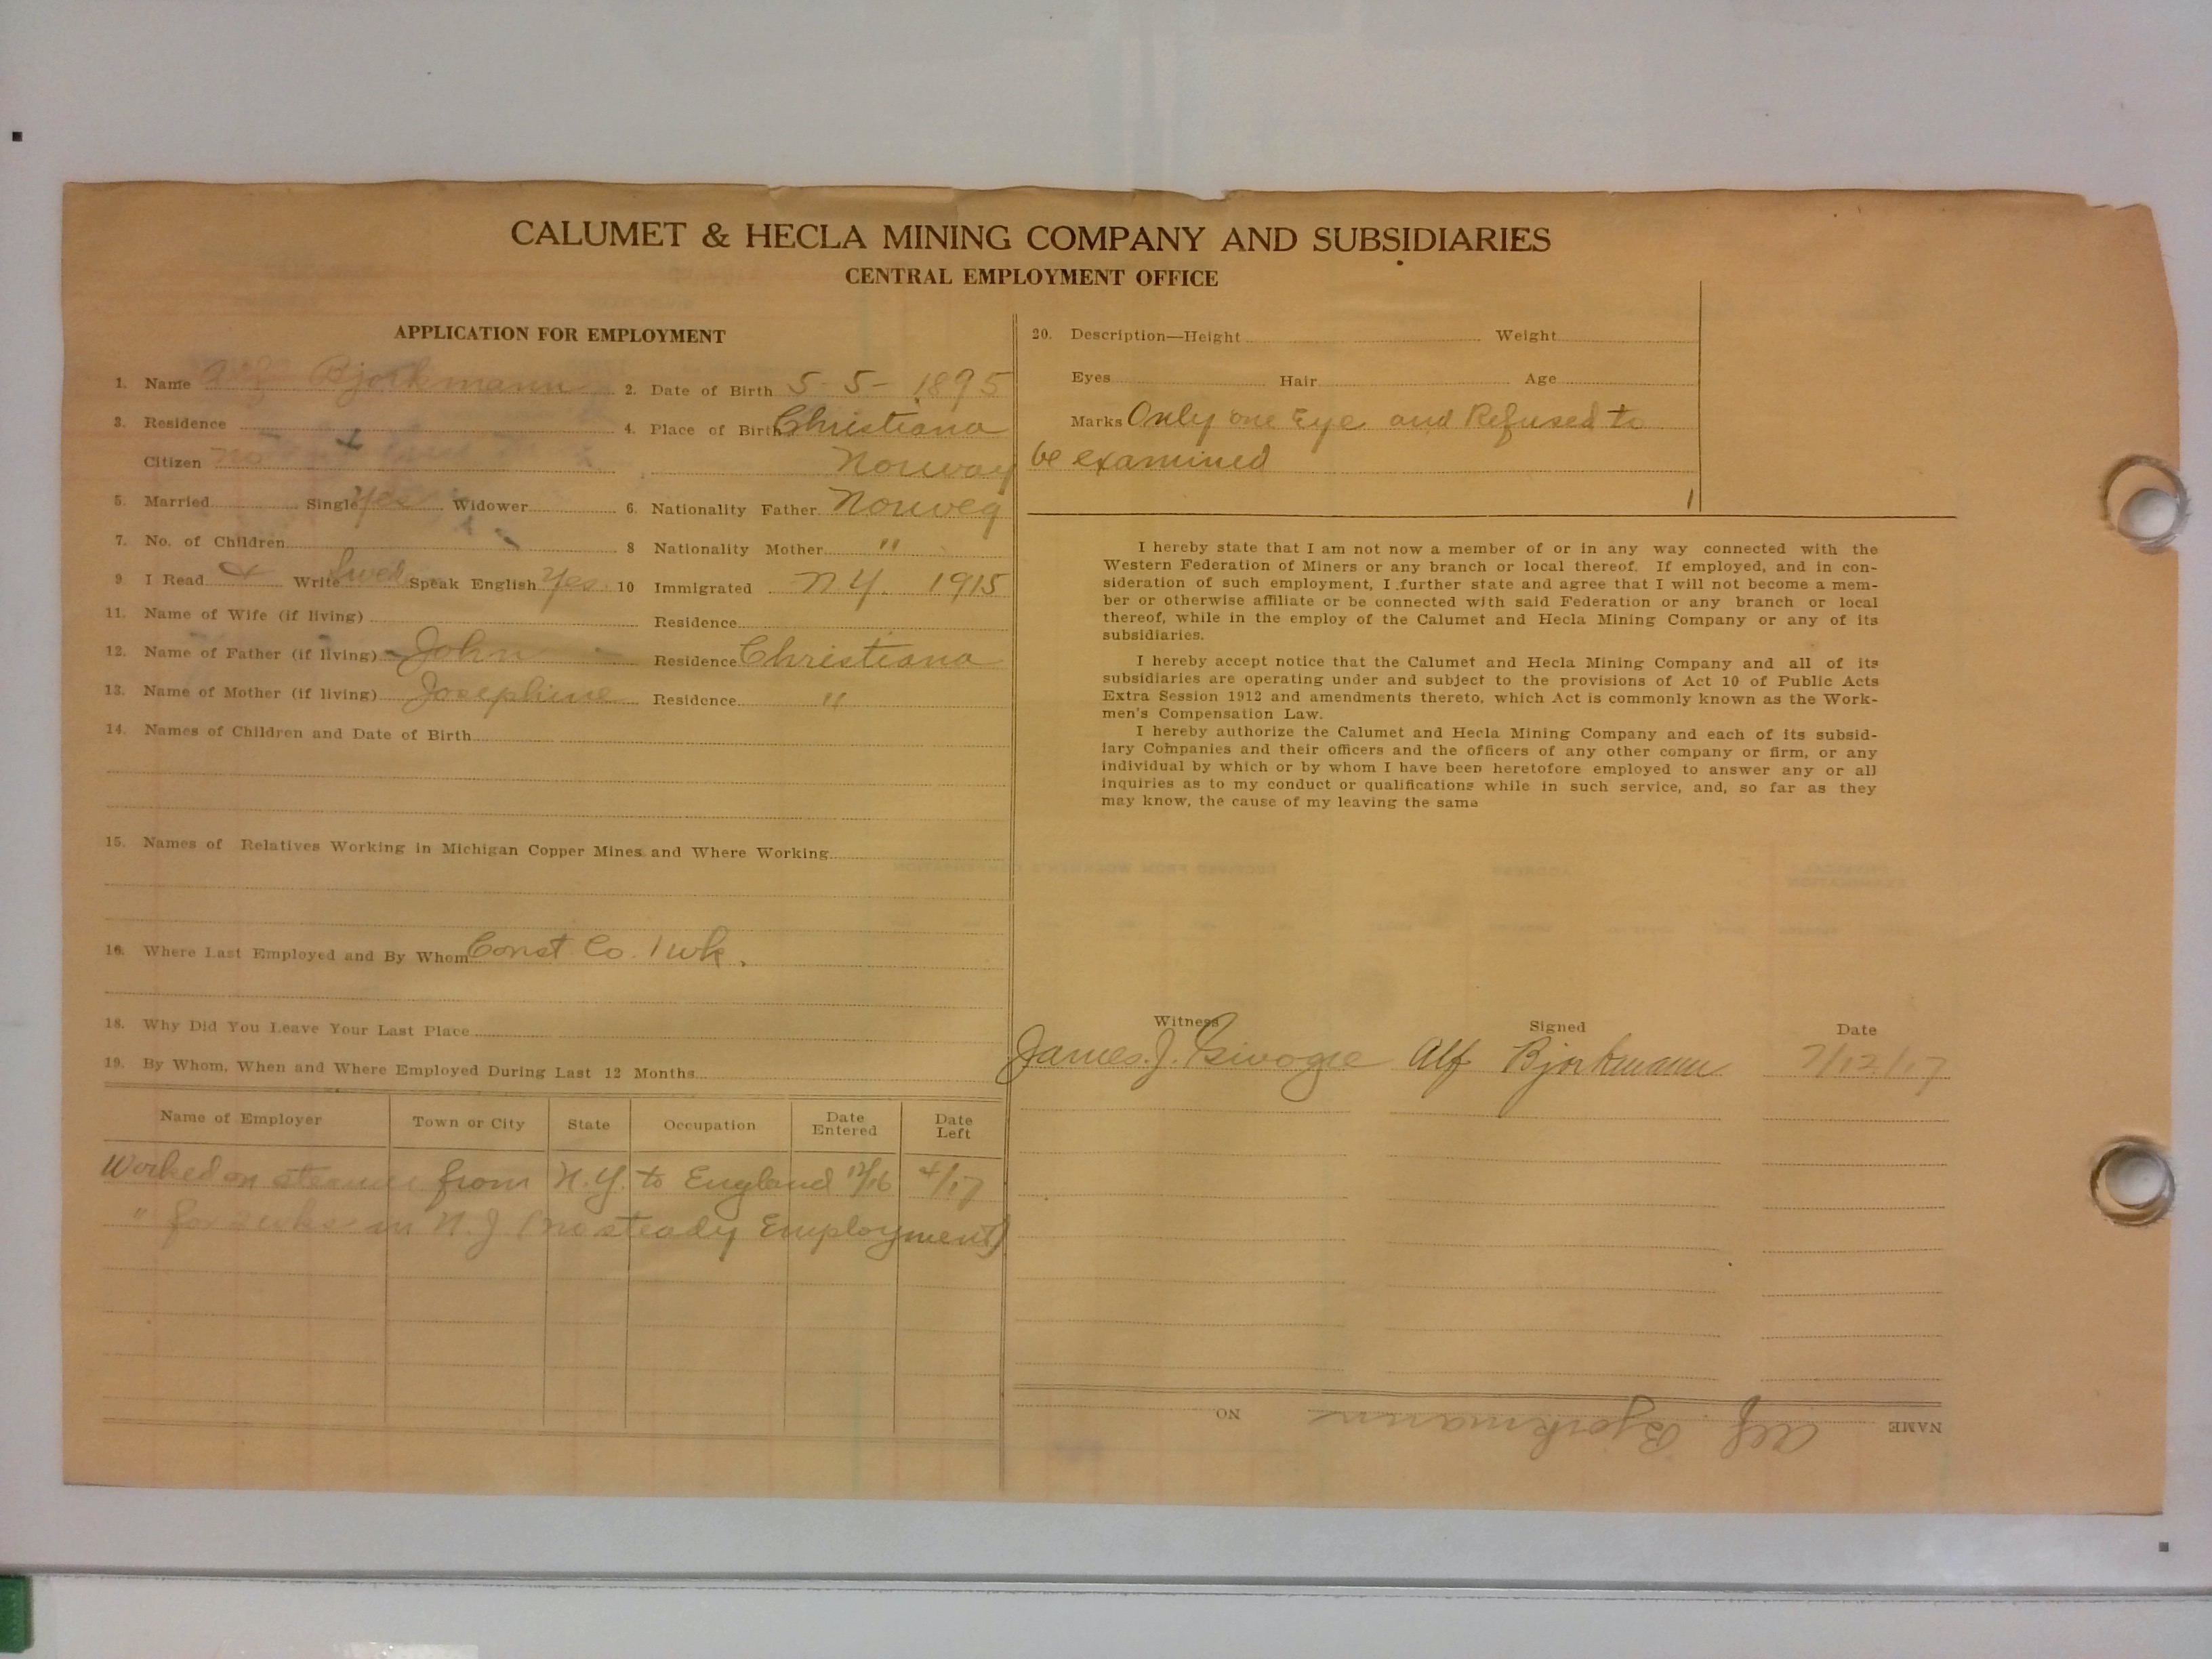 CALUMET & HECLA MINING COMPANY AND SUBSIDIARIES
CENTRAL EMPLOYMENT OFFICE
APPLICATION FOR EMPLOYMENT
1. Name Alf Bjorkmann 2. Date of Birth 5-5-1895
3. Residence 4. Place of Birth Christiana
Citizen no Norway
5. Married Single Yes Widower 6. Nationality Father Norweg
7. No. of Children 8 Nationality Mother "
9. I Read & Write Swed Speak English Yes 10 Immigrated N Y. 1915
11. Name of Wife (if living) Residence
12. Name of Father (if living) John Residence Christiana
13. Name of Mother (if living) Josephine Residence "
14. Names of Children and Date of Birth
15. Names of Relatives Working in Michigan Copper Mines and Where Working
16. Where Last Employed and By Whom Const Co. 1 wk.
18. Why Did You Leave Your Last Place
19. By Whom, When and Where Employed During Last 12 Months
Name of Employer Town or City State Occupation Date Entered Date Left
Worked on steamer from N.Y. to England 12/16 4/17
" for wks in N.J. (no steady Employment)
20. Description—Height Weight
Eyes Hair Age
Marks Only one Eye and Refused to
be examined
I hereby state that I am not now a member of or in any way connected with the
Western Federation of Miners or any branch or local thereof. If employed, and in con-
sideration of such employment, I further state and agree that I will not become a mem-
ber or otherwise affiliate or be connected with said Federation or any branch or local
thereof, while in the employ of the Calumet and Hecla Mining Company or any of its
subsidiaries.
I hereby accept notice that the Calumet and Hecla Mining Company and all of its
subsidiaries are operating under and subject to the provisions of Act 10 of Public Acts
Extra Session 1912 and amendments thereto, which Act is commonly known as the Work-
men's Compensation Law.
I hereby authorize the Calumet and Hecla Mining Company and each of its subsid-
iary Companies and their officers and the officers of any other company or firm, or any
individual by which or by whom I have been heretofore employed to answer any or all
inquiries as to my conduct or qualifications while in such service, and, so far as they
may know, the cause of my leaving the same
Witness Signed Date
James. J. Alf Bjorkmann 7/12/17
NAME Alf Bjorkmann NO